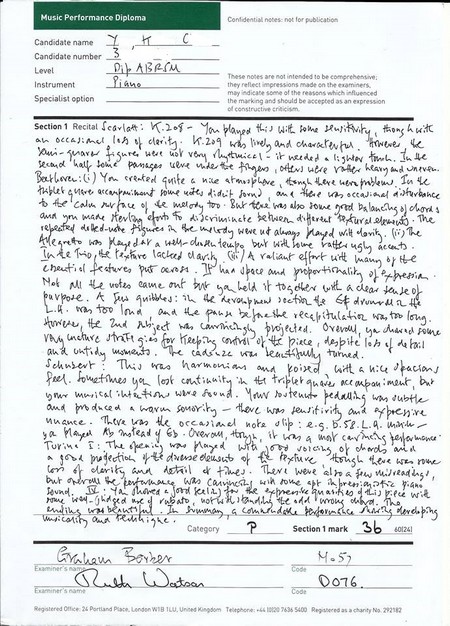 Music Performance Diploma
Confidential notes: not for publication
Candidate name Y H C
Candidate number 3
Level Dip ABRSM
Instrument Piano
Specialist option
These notes are not intended to be comprehensive;
they reflect impressions made on the examiners,
may indicate some of the reasons which influenced
the marking and should be accepted as an expression
of constructive criticism.
Section 1 Recital Scarlatti: K.208 - You played this with some sensitivity, though with
an occasional loss of clarity. K.209 was lively and characterful. However, the
semi-quaver figures were not very rhythmical - it needed a lighter touch. In the
second half some passages were under the fingers, others were rather heavy and uneven.
Beethoven: (i) You created quite a nice atmosphere, though there were problems. In the
triplet quaver accompaniment some notes didn't sound and there was occasional disturbance
to the calm surface of the melody too. But there was also some good balancing of chords
and you made sterling efforts to discriminate between different textural elements. The
repeated dotted-note figures in the melody were not always played with clarity. (ii) The
Allegretto was played at a well-chosen tempo but with some rather ugly accents.
In the Trio, the texture lacked clarity. (iii) A valiant effort with many of the
essential features put across. It had space and proportionality of expression.
Not all the notes came out but you held it together with a clear sense of
purpose. A few quibbles: in the development section the G# drum roll in the
L.H. was too loud and the pause before the recapitulation was too long.
However, the 2nd subject was convincingly projected. Overall, you showed some
very mature strategies for keeping control of the piece, despite loss of detail
and untidy moments. The cadenza was beautifully turned.
Schubert: This was harmonious and poised with a nice spacious
feel. Sometimes you lost continuity in the triplet quaver accompaniment, but
your musical intentions were sound. Your sostenuto pedalling was subtle
and produced a warm sonority - there was sensitivity and expressive
nuance. There was the occasional note slip: e.g. b.58. L.H. -
you played Ab instead of Gb. Overall, though, it was a most convincing performance.
Turina I: The opening was played with good voicing of chords and
a good projection of the diverse elements of the texture though there was some
loss of clarity and detail at times. There were also a few misreadings,
but overall the performance was convincing with some apt impressionistic piano
sound. IV: You showed a good feeling for the expressive qualities of this piece with
some well-judged use of rubato, notwithstanding the odd wrong chord. The
ending was beautiful. In summary, a commendable performance showing developing
musicality and technique.
Category P Section 1 mark 36 60(24)
Graham Barber M057
Examiner's name Code
Ruth Watson D076.
Examiner's name Code
Registered Office: 24 Portland Place, London W1B 1LU, United Kingdom Telephone: +44 (0)20 7636 5400 Registered as a charity No. 292182